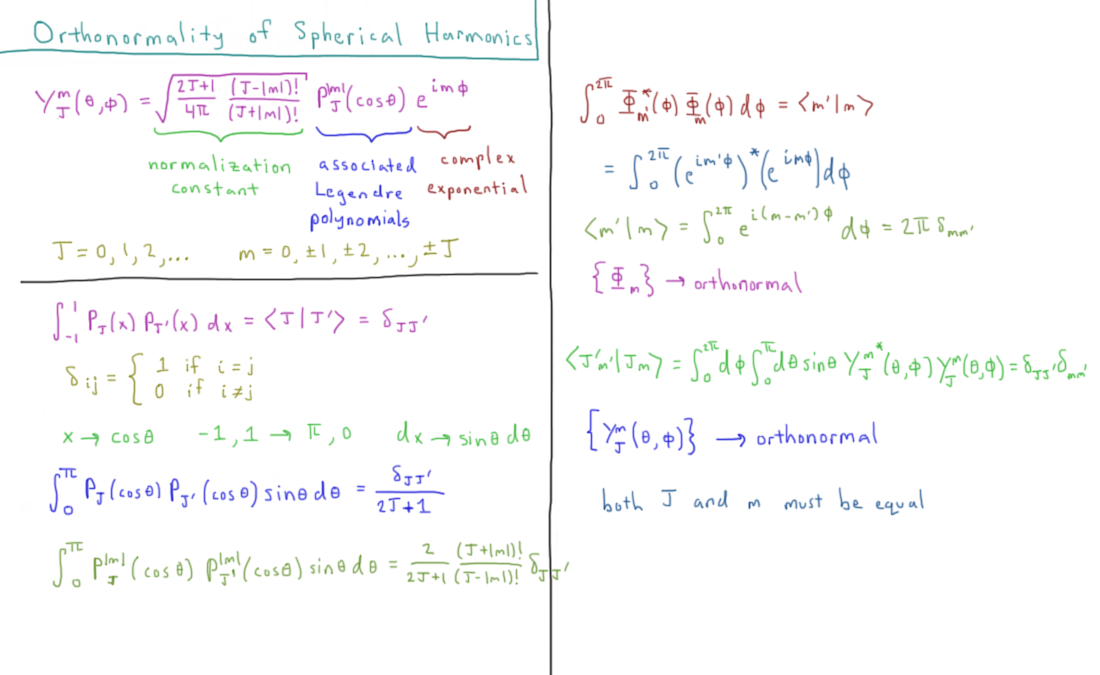 Orthonormality of Spherical Harmonics
Y_J^m(θ,ϕ) = √(2J+1/4π (J-|m|)!/(J+|m|)!) P_J^|m|(cosθ) e^{imϕ}
normalization constant
associated Legendre polynomials
complex exponential
J = 0, 1, 2, ... m = 0, ±1, ±2, ..., ±J
∫_{-1}^{1} P_J(x) P_J'(x) dx = ⟨J|J'⟩ = δ_JJ'
δ_ij = { 1 if i = j
0 if i ≠ j
x → cosθ -1, 1 → π, 0 dx → sinθ dθ
∫_0^π P_J(cosθ) P_J'(cosθ) sinθ dθ = δ_JJ' / 2J+1
∫_0^π P_J^|m|(cosθ) P_J'^|m|(cosθ) sinθ dθ = 2/2J+1 (J+|m|)!/(J-|m|)! δ_JJ'
∫_0^{2π} Φ_m'^*(ϕ) Φ_m(ϕ) dϕ = ⟨m'|m⟩
= ∫_0^{2π} (e^{im'ϕ})^* (e^{imϕ}) dϕ
⟨m'|m⟩ = ∫_0^{2π} e^{i(m-m')ϕ} dϕ = 2π δ_mm'
{Φ_m} → orthonormal
⟨J'm'|Jm⟩ = ∫_0^{2π} dϕ ∫_0^π dθ sinθ Y_J^m*(θ,ϕ) Y_J^m(θ,ϕ) = δ_JJ' δ_mm'
{Y_J^m(θ,ϕ)} → orthonormal
both J and m must be equal